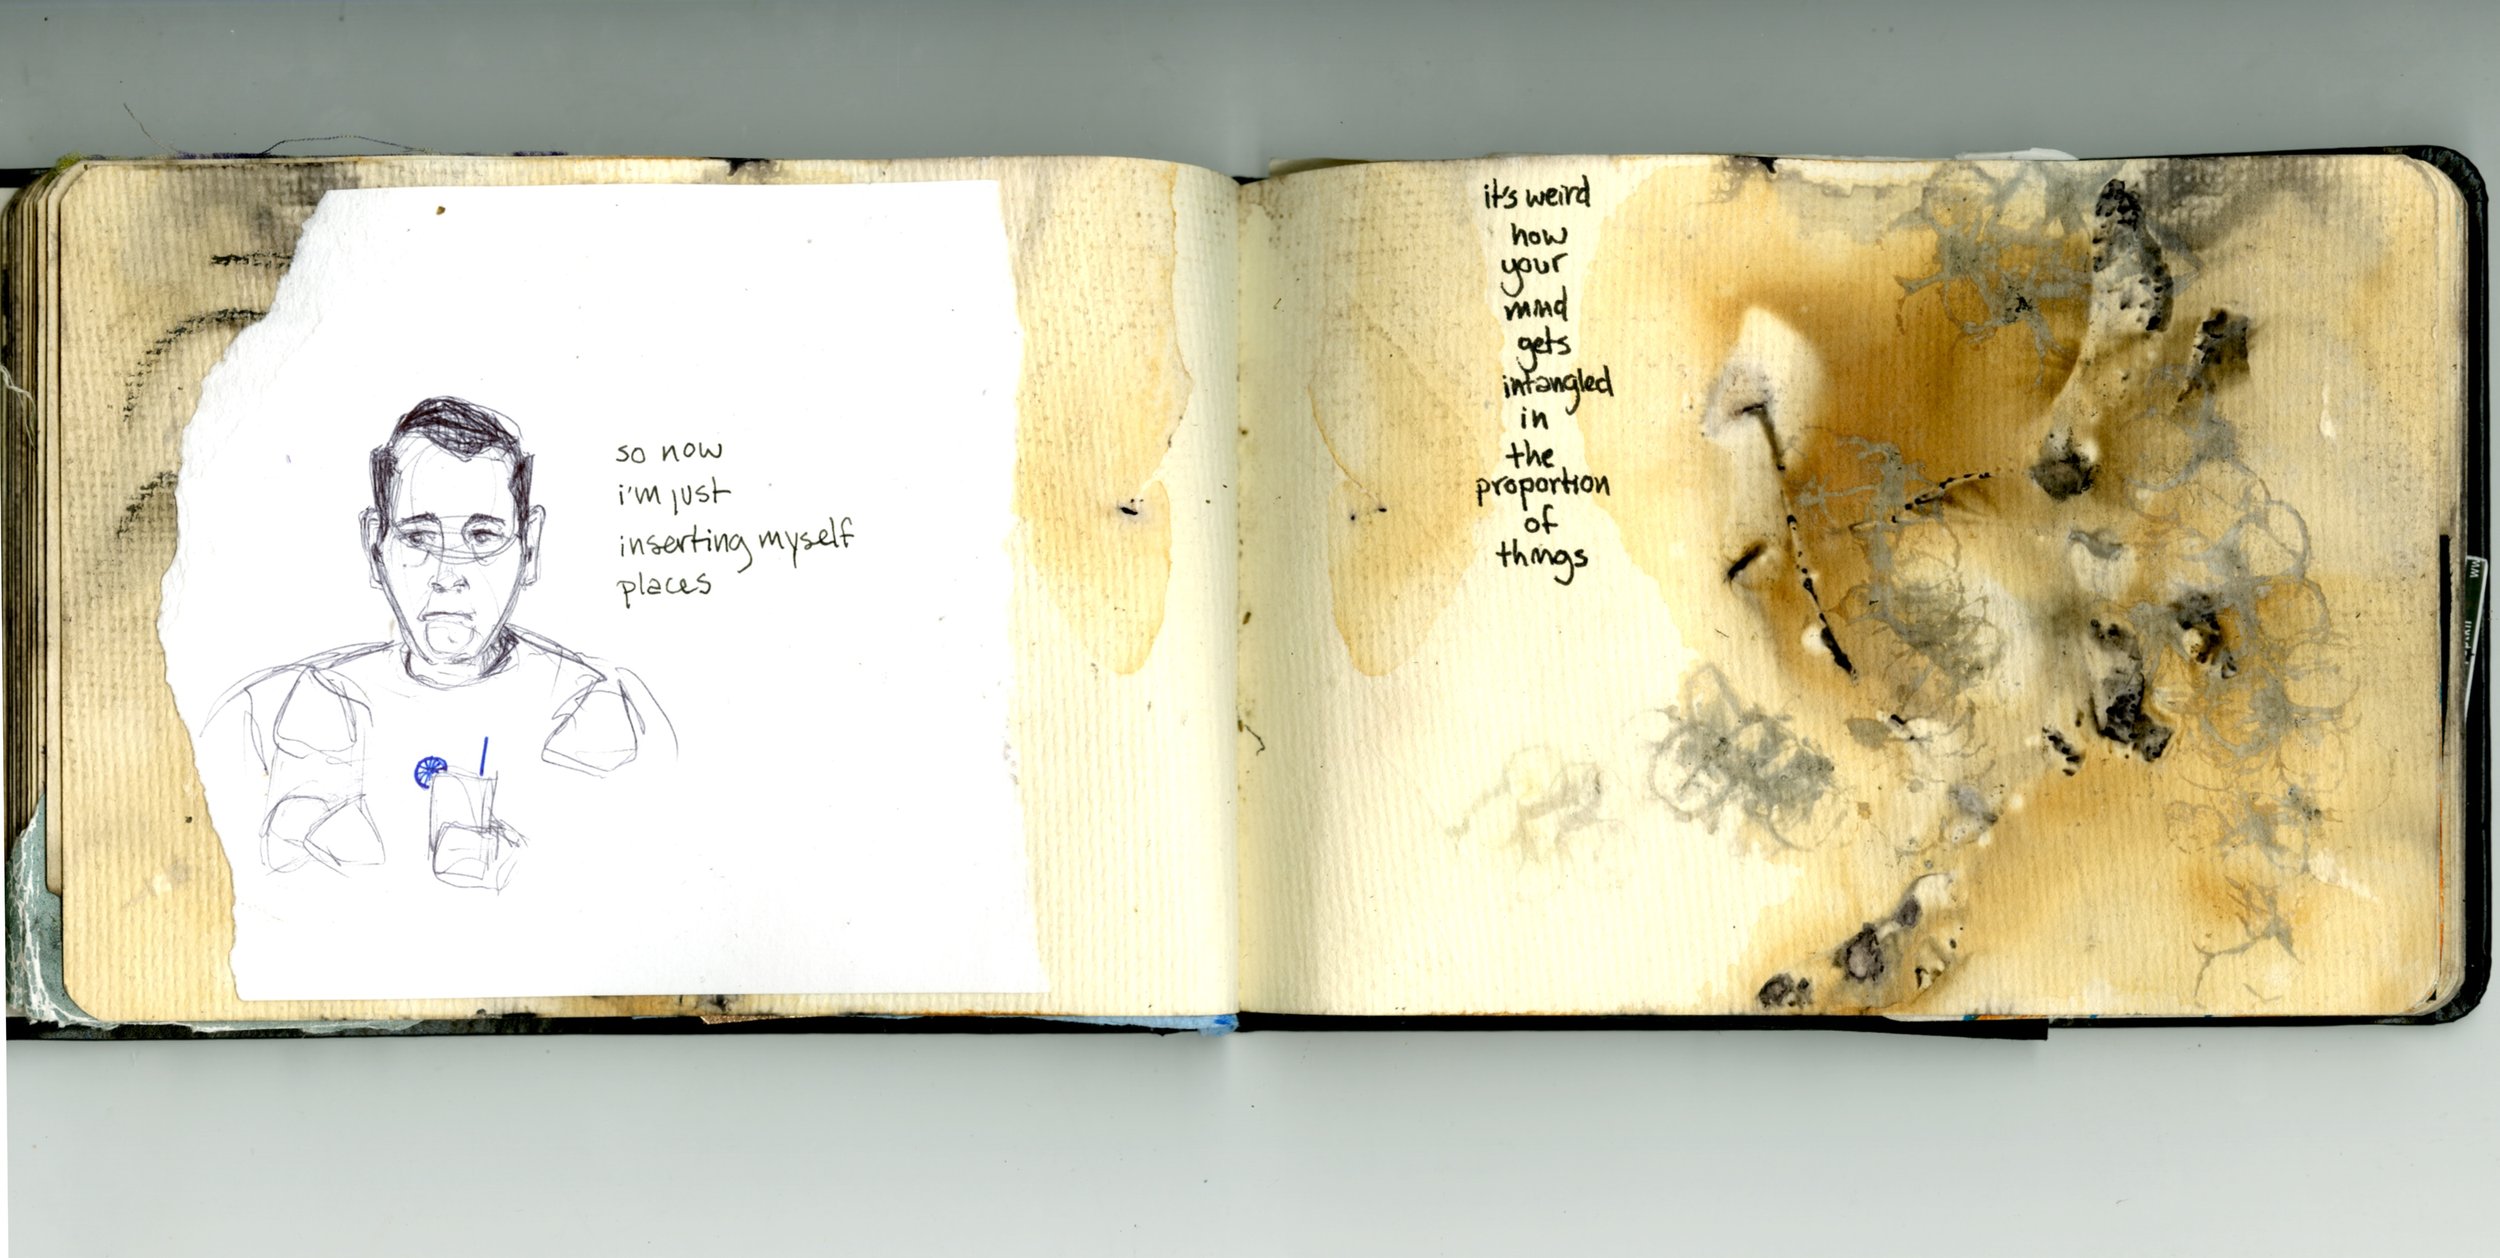 so now
i'm just
inserting myself
places
it's weird
how
your
mind
gets
intangled
in
the
proportion
of
things